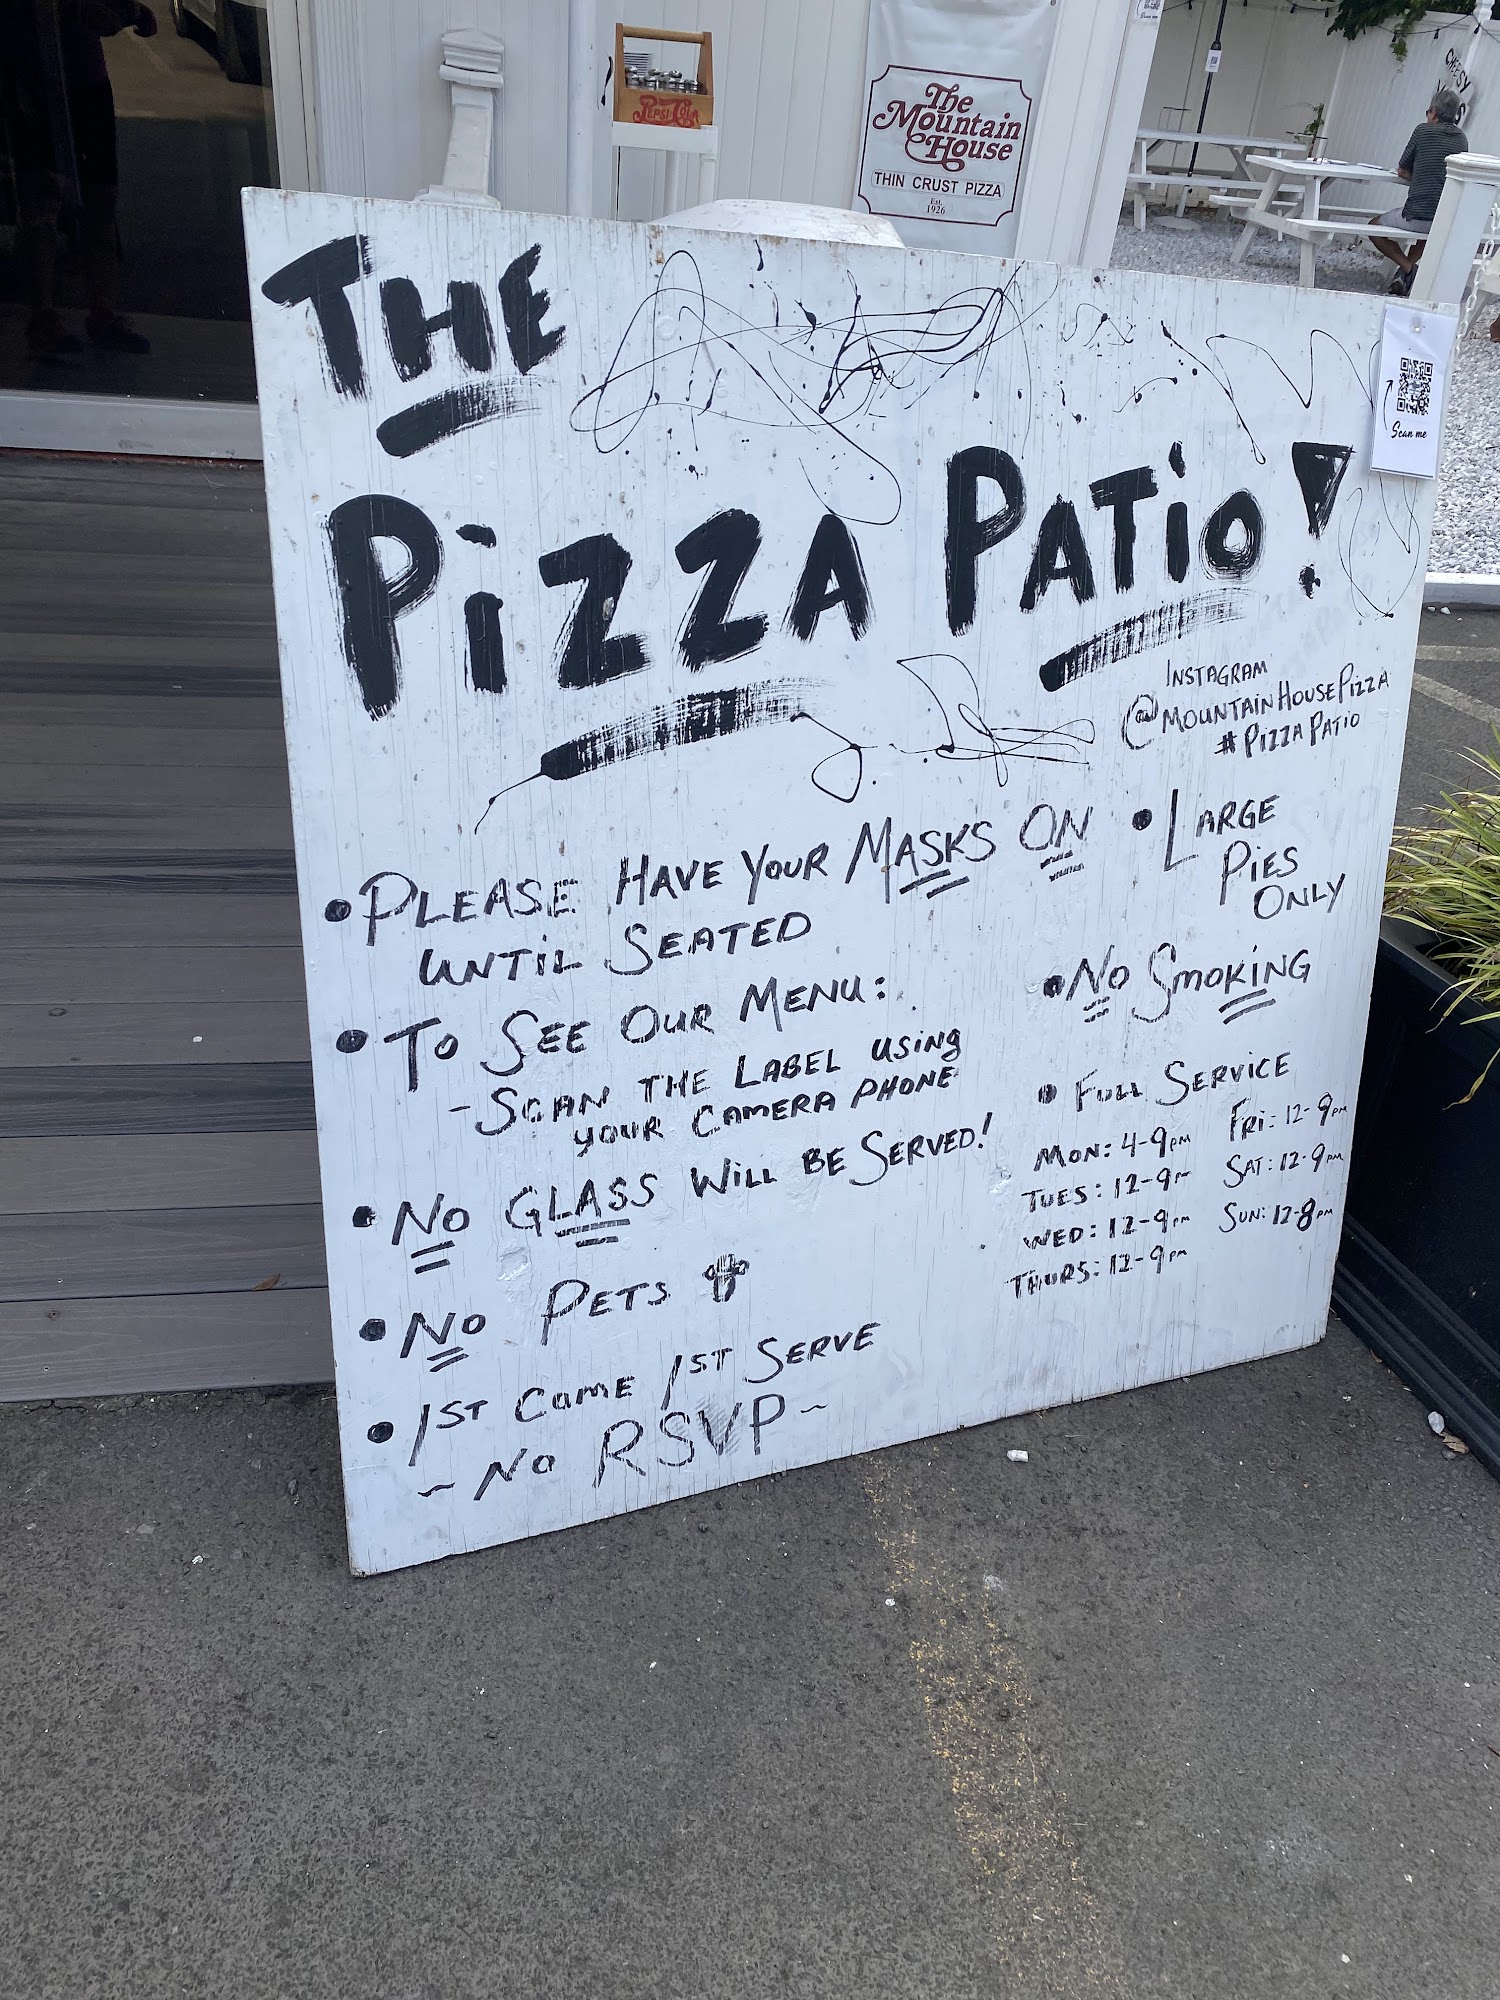 PEPSI-COLA
The
Mountain
House
THIN CRUST PIZZA
Est.
1926
CHEESY
THE
PiZZA PATiO!
Scan me
INSTAGRAM
@MOUNTAINHOUSEPIZZA
#PIZZAPATIO
• PLEASE HAVE YOUR MASKS ON
UNTIL SEATED
• TO SEE OUR MENU:
- SCAN THE LABEL USING
YOUR CAMERA PHONE
• NO GLASS WILL BE SERVED!
• NO PETS
• 1ST COME 1ST SERVE
~ NO RSVP ~
• LARGE
PIES
ONLY
• NO SMOKING
• FULL SERVICE
MON: 4-9PM
TUES: 12-9PM
WED: 12-9PM
THURS: 12-9PM
FRI: 12-9PM
SAT: 12-9PM
SUN: 12-8PM